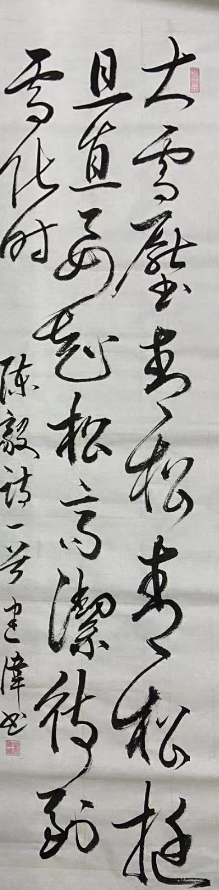 大雪壓青松青松挺
且直要知松高潔待到
雪化时
陈毅诗一首建偉书